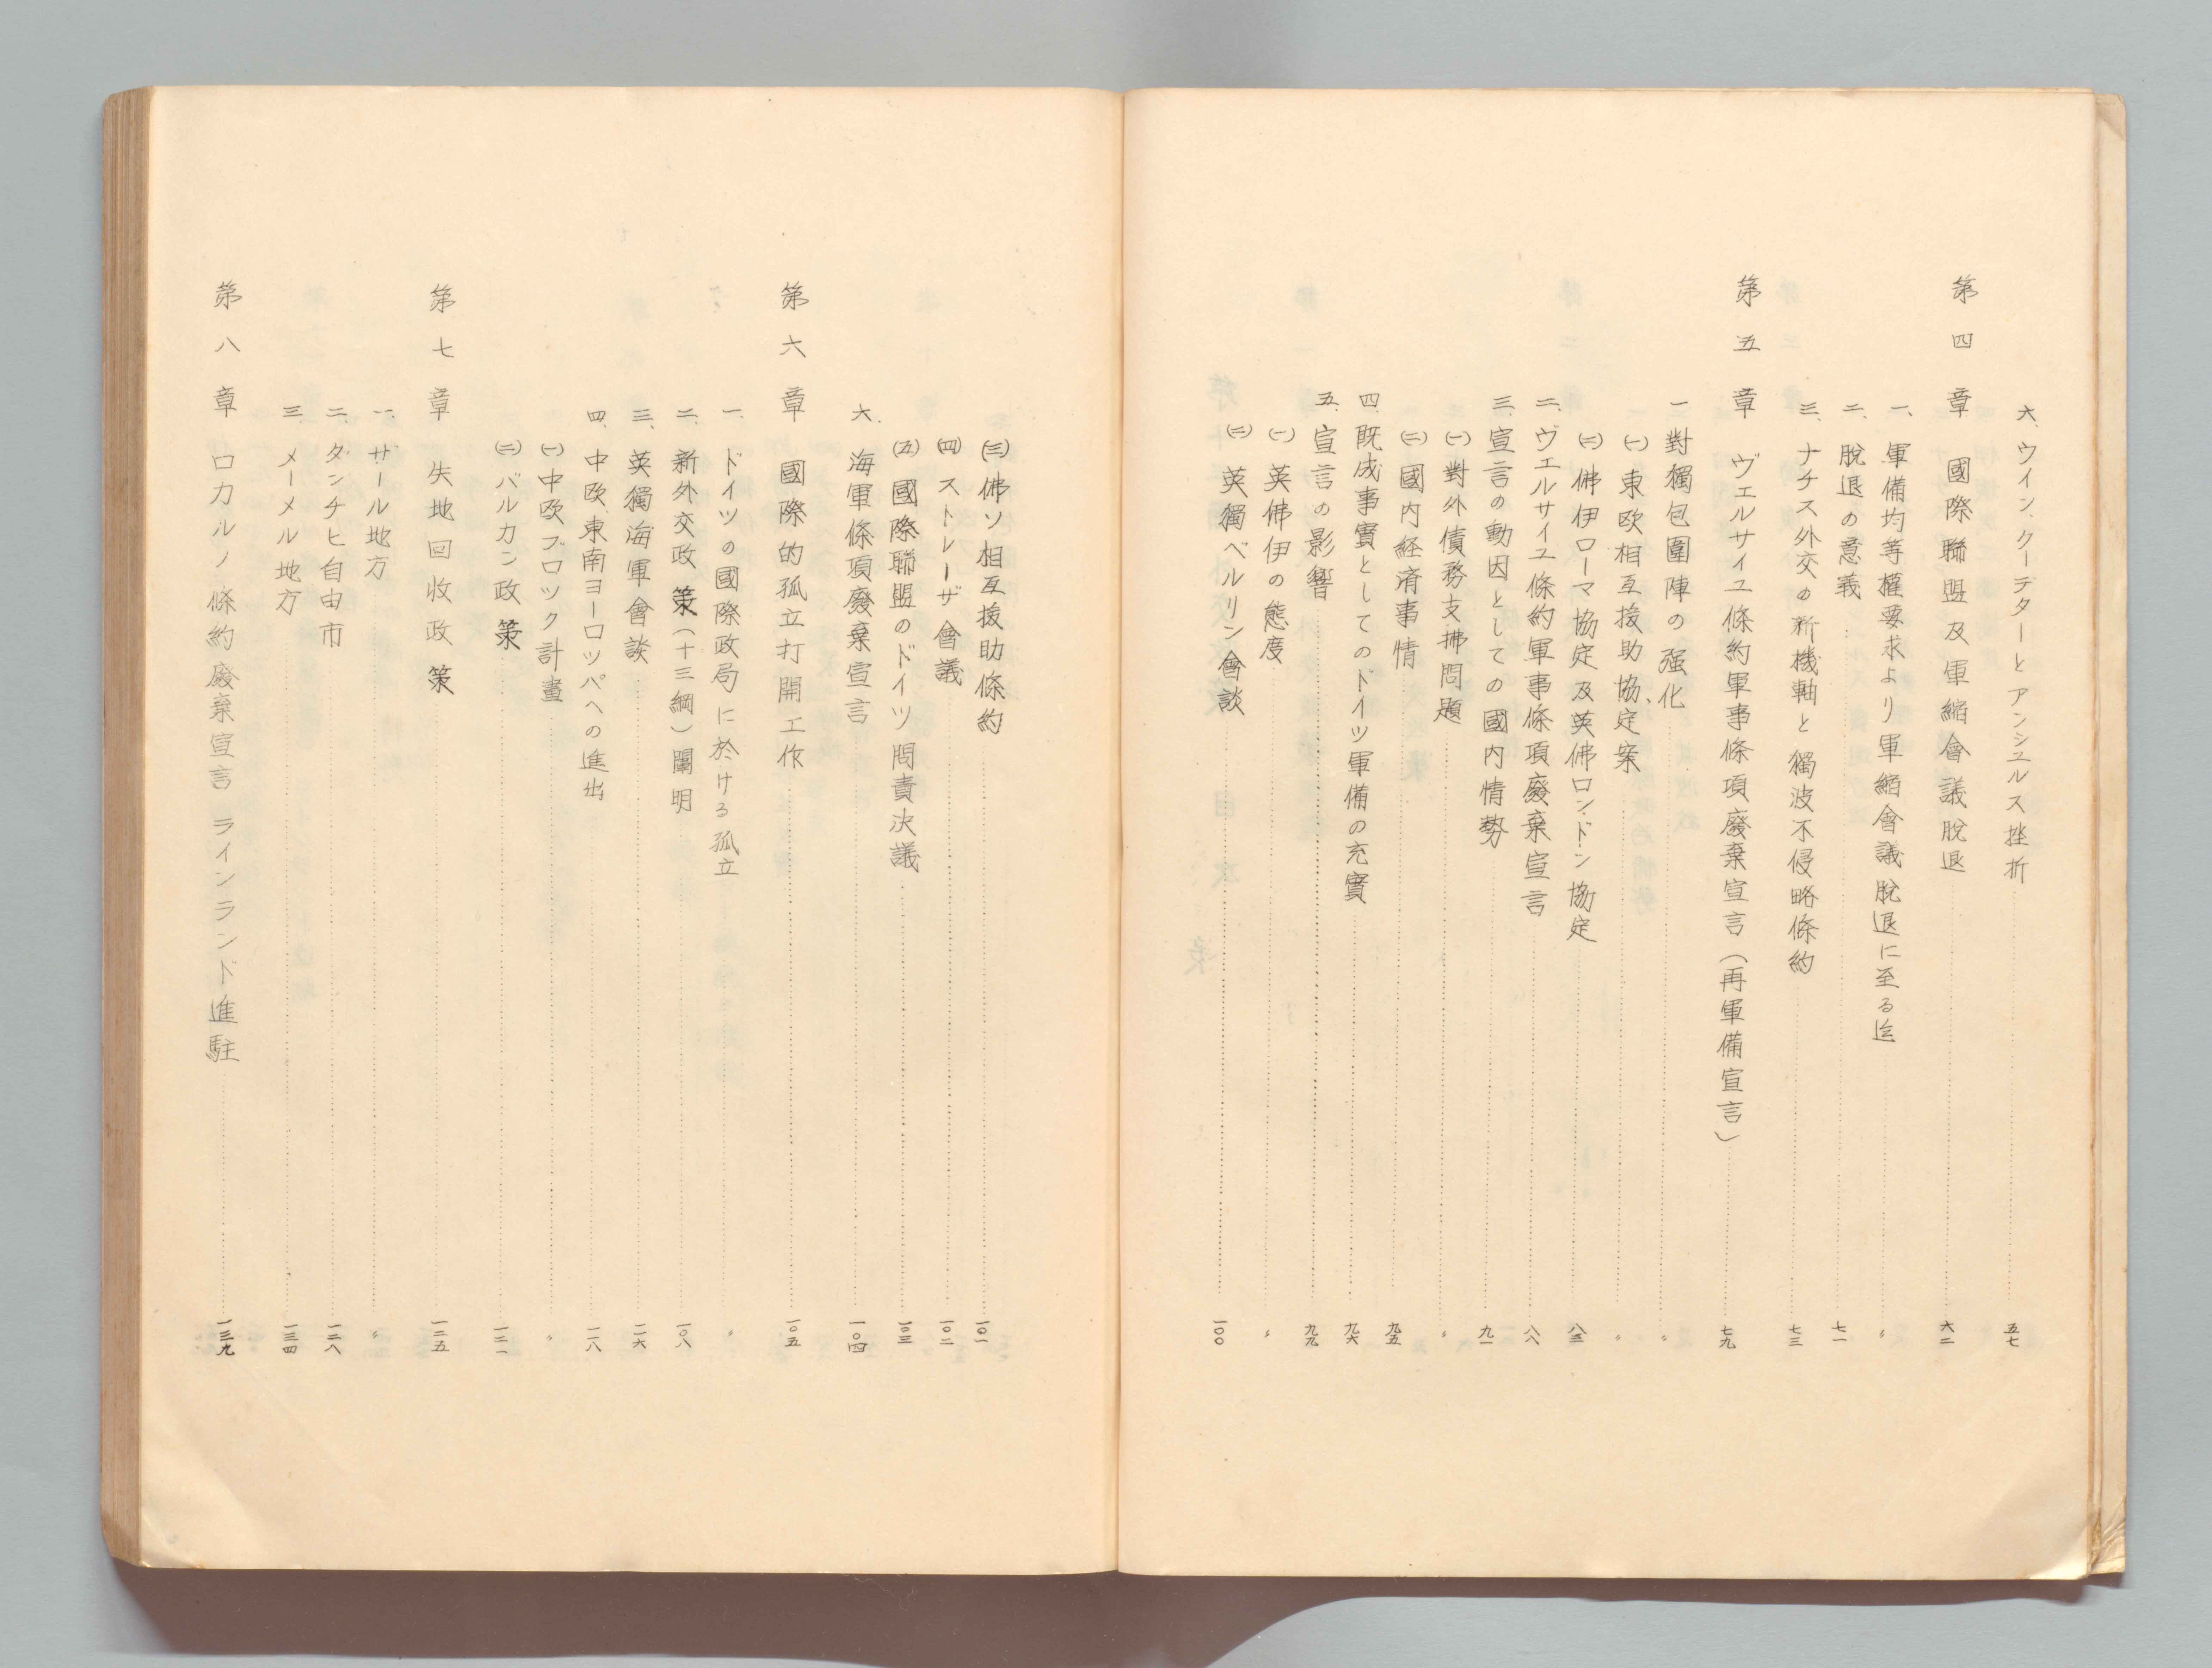 六、ウイン、クーデターとアンシュルス挫折……五七
第四章 國際聯盟及軍縮會議脫退……六二
一、軍備均等權要求より軍縮會議脫退に至る迄……〃
二、脫退の意義……七一
三、ナチス外交の新機軸と獨波不侵略條約……七三
第五章 ヴェルサイユ條約軍事條項廢棄宣言（再軍備宣言）……七九
一 對獨包圍陣の强化……〃
㈠ 東欧相互援助協定案……〃
㈡ 佛伊ローマ協定及英佛ロンドン協定……八三
二、ヴエルサイユ條約軍事條項廢棄宣言……八八
三、宣言の動因としての國内情勢……九一
㈠ 對外債務支拂問題……〃
㈡ 國内経済事情……九五
四 既成事實としてのドイツ軍備の充實……九六
五、宣言の影響……九九
㈠ 英佛伊の態度……〃
㈡ 英獨ベルリン會談……一〇〇
㈢ 佛ソ相互援助條約……一〇一
㈣ ストレーザ會議……一〇二
㈤ 國際聯盟のドイツ問責決議……一〇三
六、海軍條項廢棄宣言……一〇四
第六章 國際的孤立打開工作……一〇五
一、ドイツの國際政局に於ける孤立……〃
二、新外交政策（十三綱）闡明……一〇八
三、英獨海軍會談……一一六
四、中欧、東南ヨーロツパへの進出……一一八
㈠ 中欧ブロツク計畫……〃
㈡ バルカン政策……一二一
第七章 失地回收政策……一二五
一、ザール地方……〃
二、ダンチヒ自由市……一二八
三 メーメル地方……一三四
第八章 ロカルノ條約廢棄宣言 ラインランド進駐……一三九